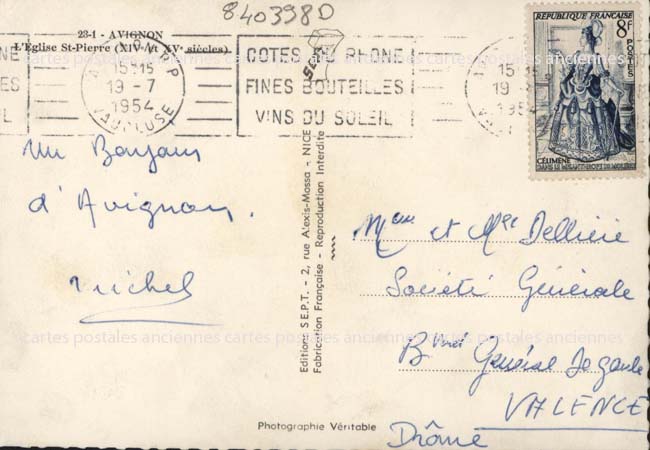 840398D
23-1 - AVIGNON
L'Eglise St-Pierre (XIVe et XVe siècles)
15H15
19 - 7
1954
VAUCLUSE
COTES DU RHONE
FINES BOUTEILLES
VINS DU SOLEIL
15H15
19
1954
RÉPUBLIQUE FRANÇAISE
8F
POSTES
CÉLIMÈNE
DANS LE MISANTHROPE DE MOLIÈRE
Un Bonjour
d'Avignon.
Michel
Editions S.E.P.T. - 2, rue Alexis-Mossa - NICE
Fabrication Française - Reproduction Interdite
Mme et Melle Dellière
Société Générale
Bvard Général de Gaulle
VALENCE
Drôme
Photographie Véritable
cartes postales anciennes cartes postales anciennes cartes postales anciennes
cartes postales anciennes cartes postales anciennes cartes postales anciennes